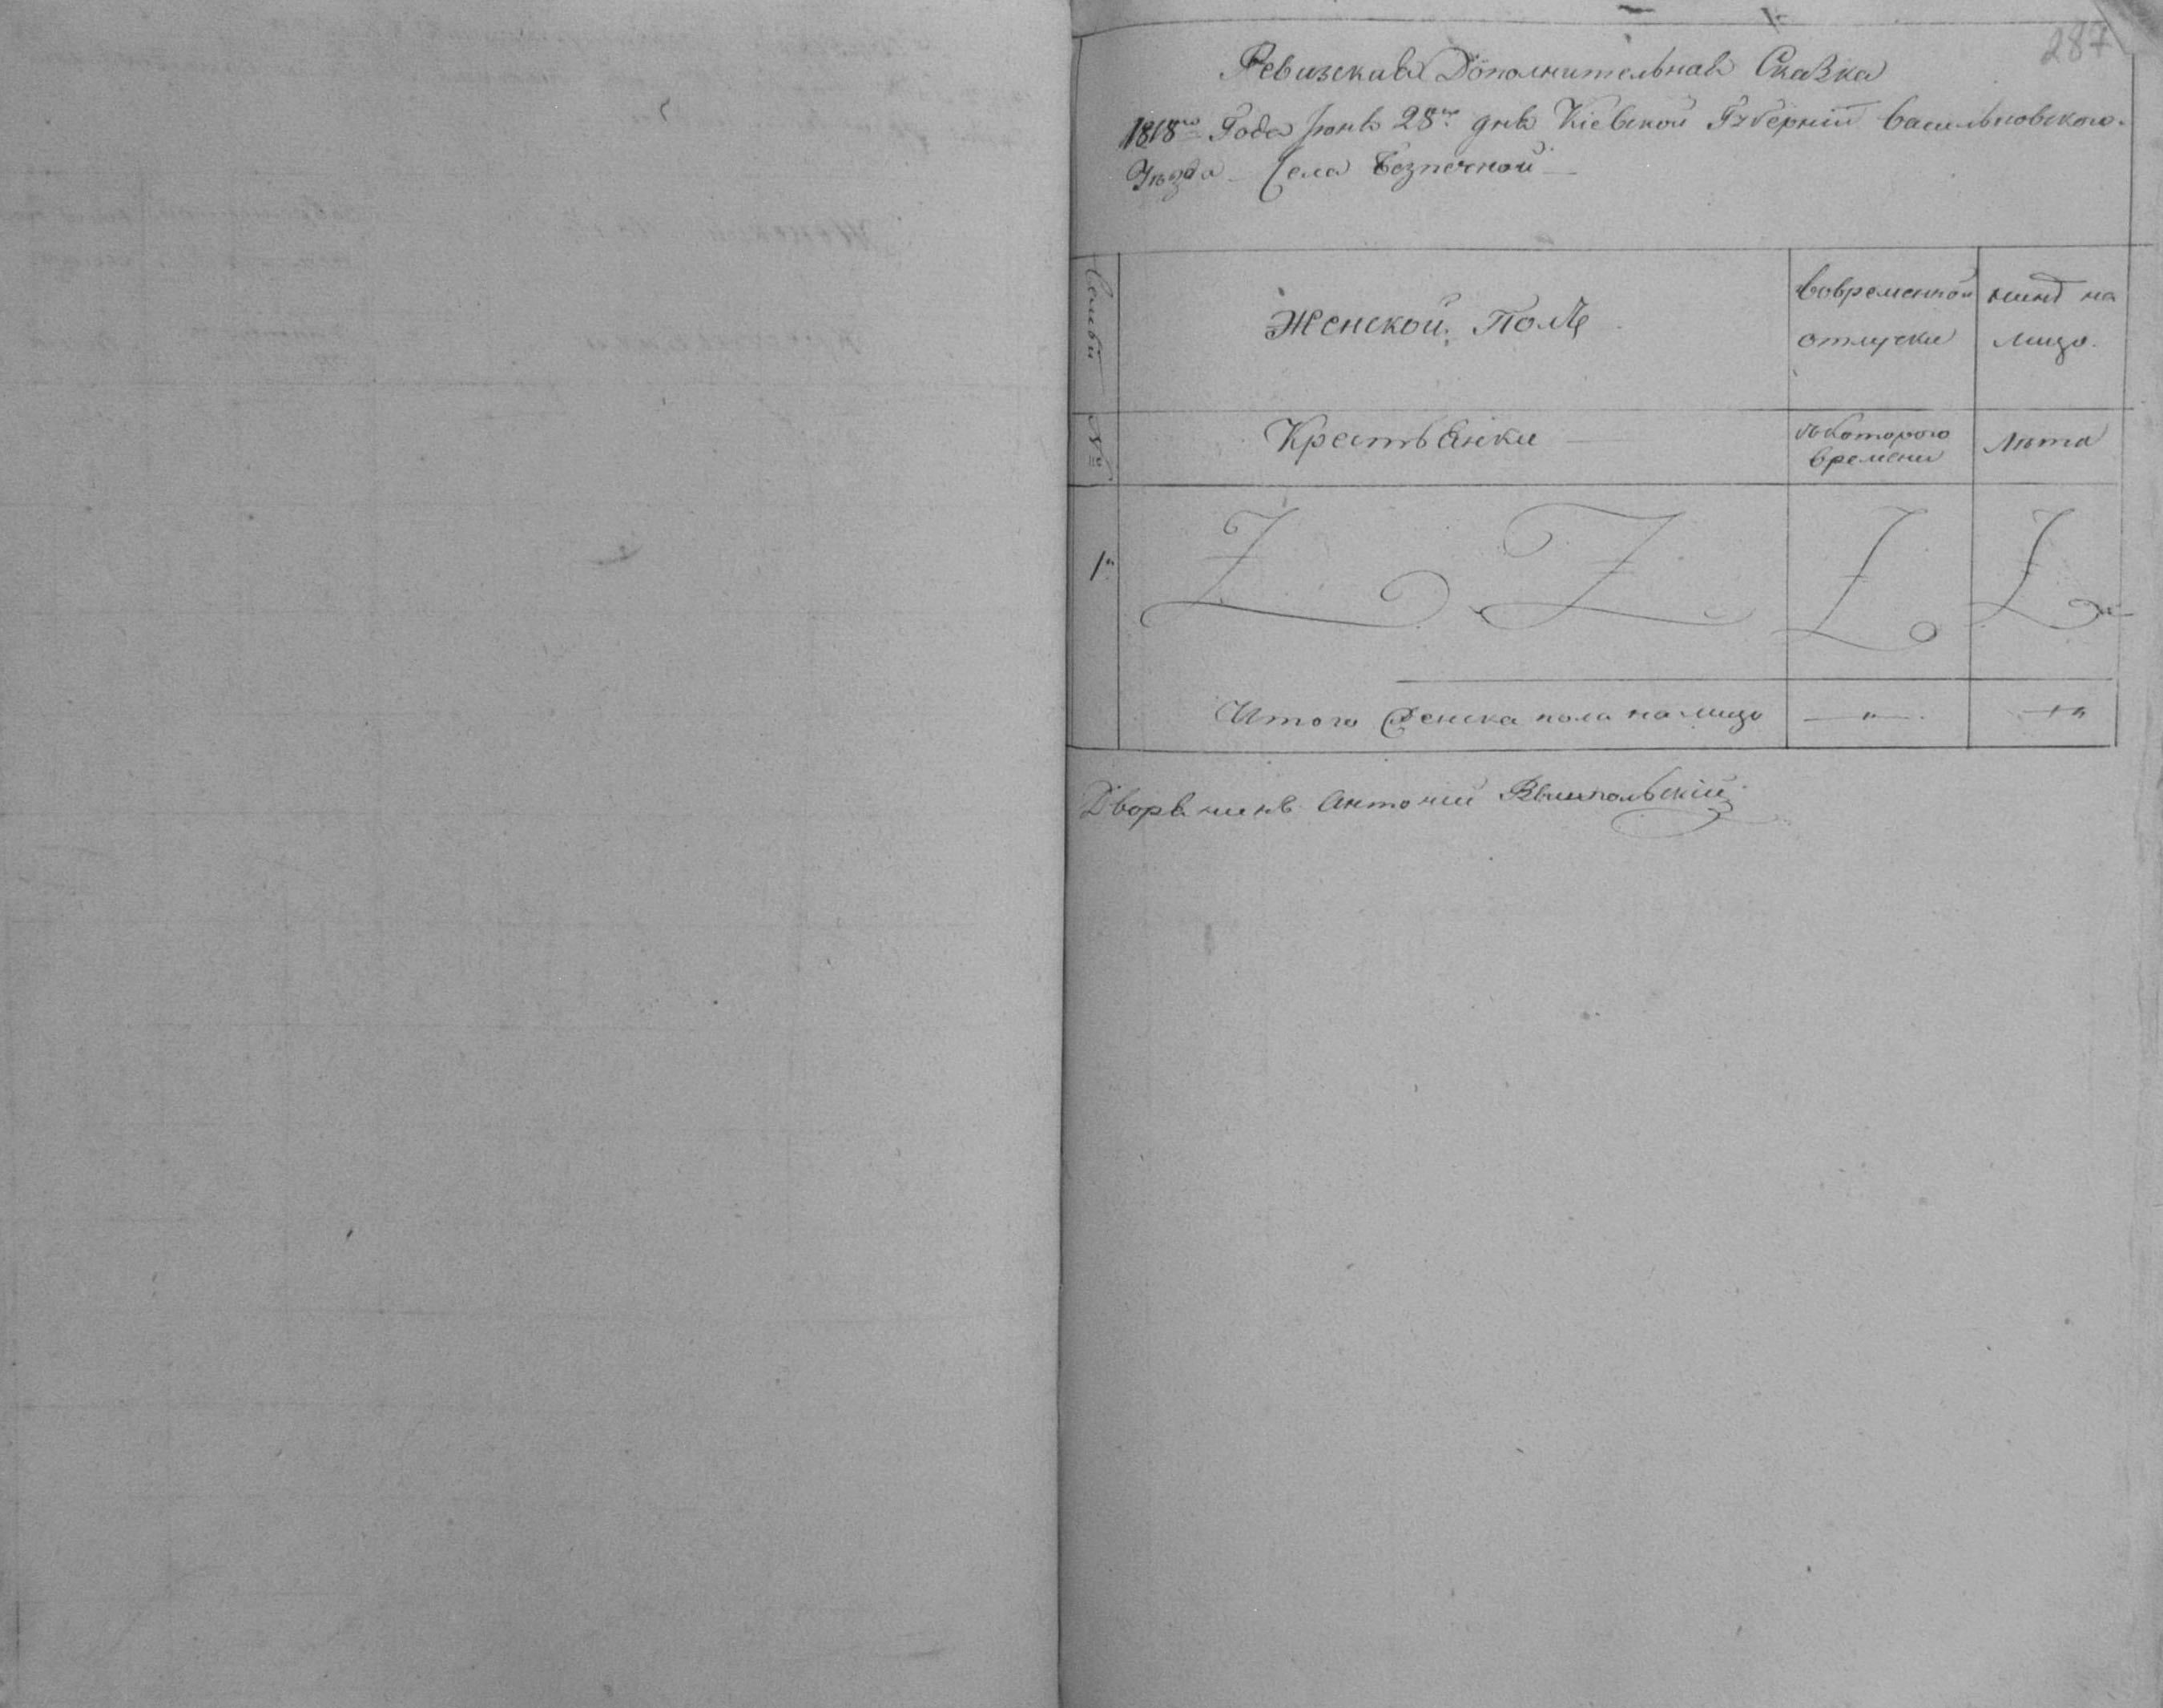 287
Ревизская Дополнительная Сказка
1818го Года Іюня 28го дня Кіевской Губерніи Васильковского
Уѣзда Села Безпечной
Семьи
Женской Полъ
вовременной отлучки
нынѣ на лицо.
№
Крестьянки
съ котораго времени
Лѣта
1"
Итого Женска пола налицо
"
"
Дворянинъ Антоній